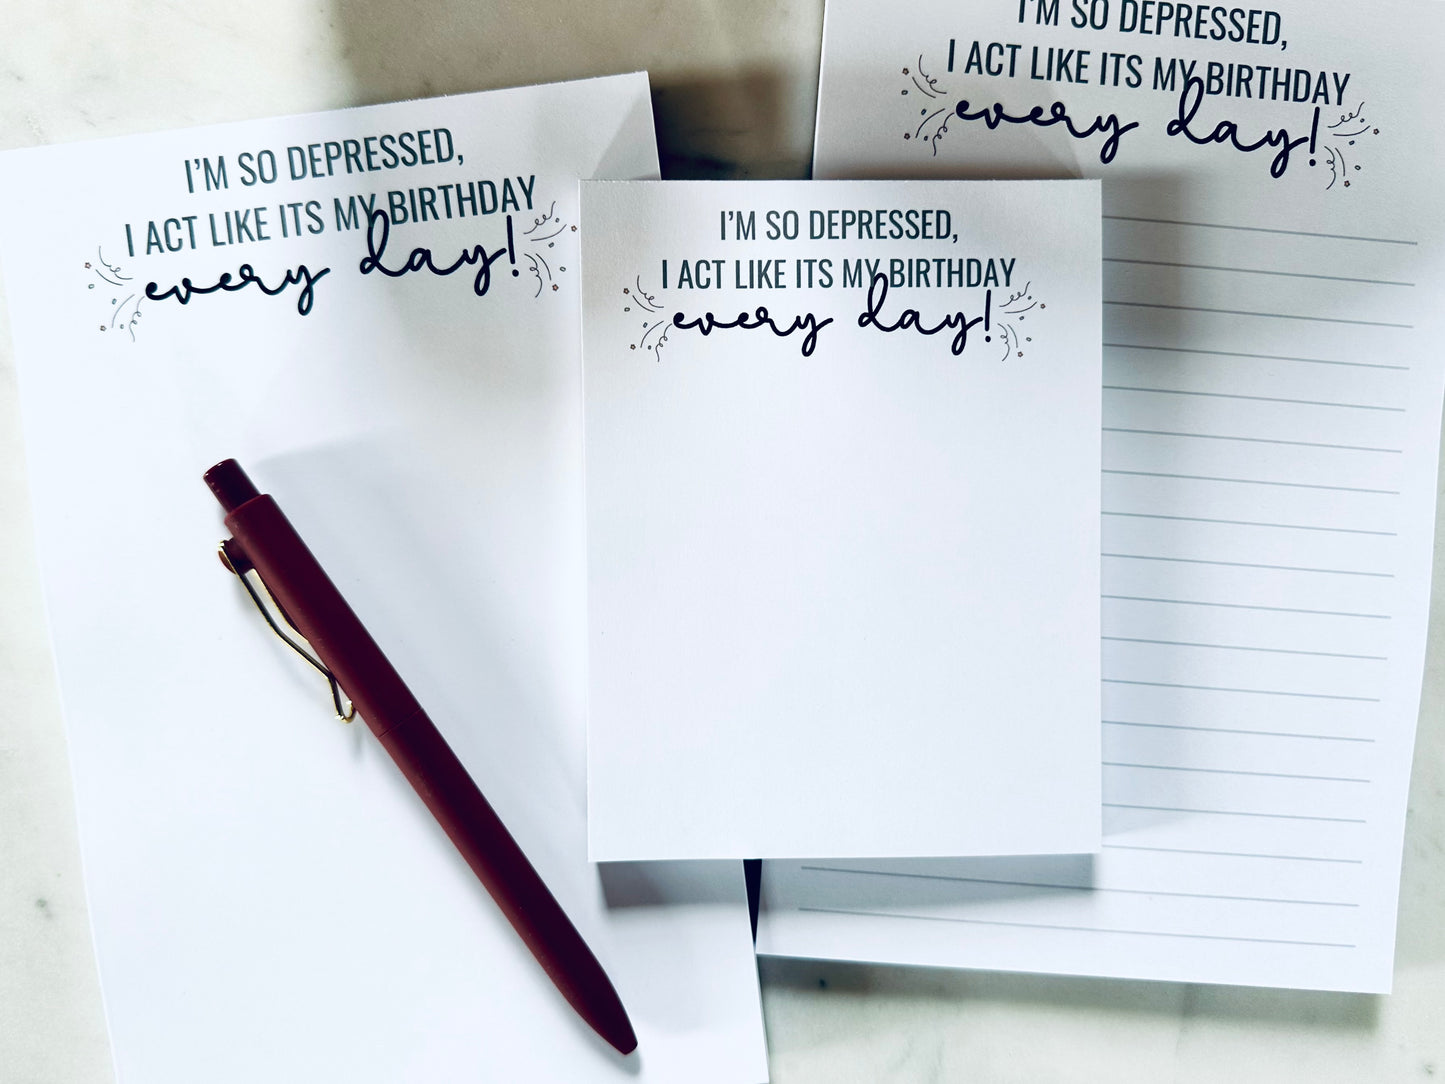 I'M SO DEPRESSED,
I ACT LIKE ITS MY BIRTHDAY
every day!
I'M SO DEPRESSED,
I ACT LIKE ITS MY BIRTHDAY
every day!
I'M SO DEPRESSED,
I ACT LIKE ITS MY BIRTHDAY
every day!